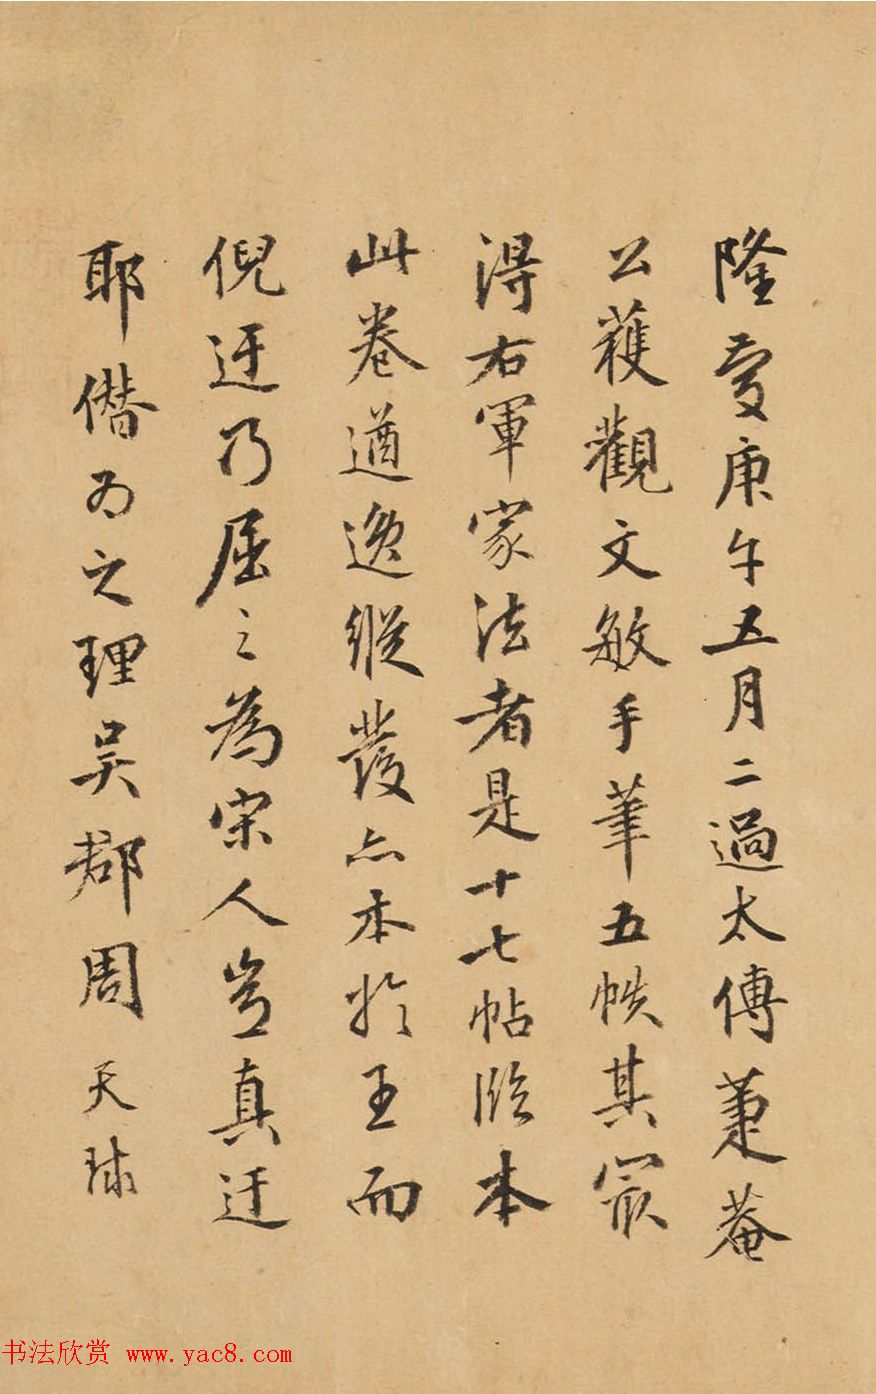 隆慶庚午五月二過太傅蕐菴
公蒦觀文敏手筆五帙其冣
得右軍家法者是十七帖臨本
此卷遒逸縱發亦本於王而
倪迂乃屈之為宋人豈真迂
耶僭為之理吴郡周天球
书法欣赏 www.yac8.com